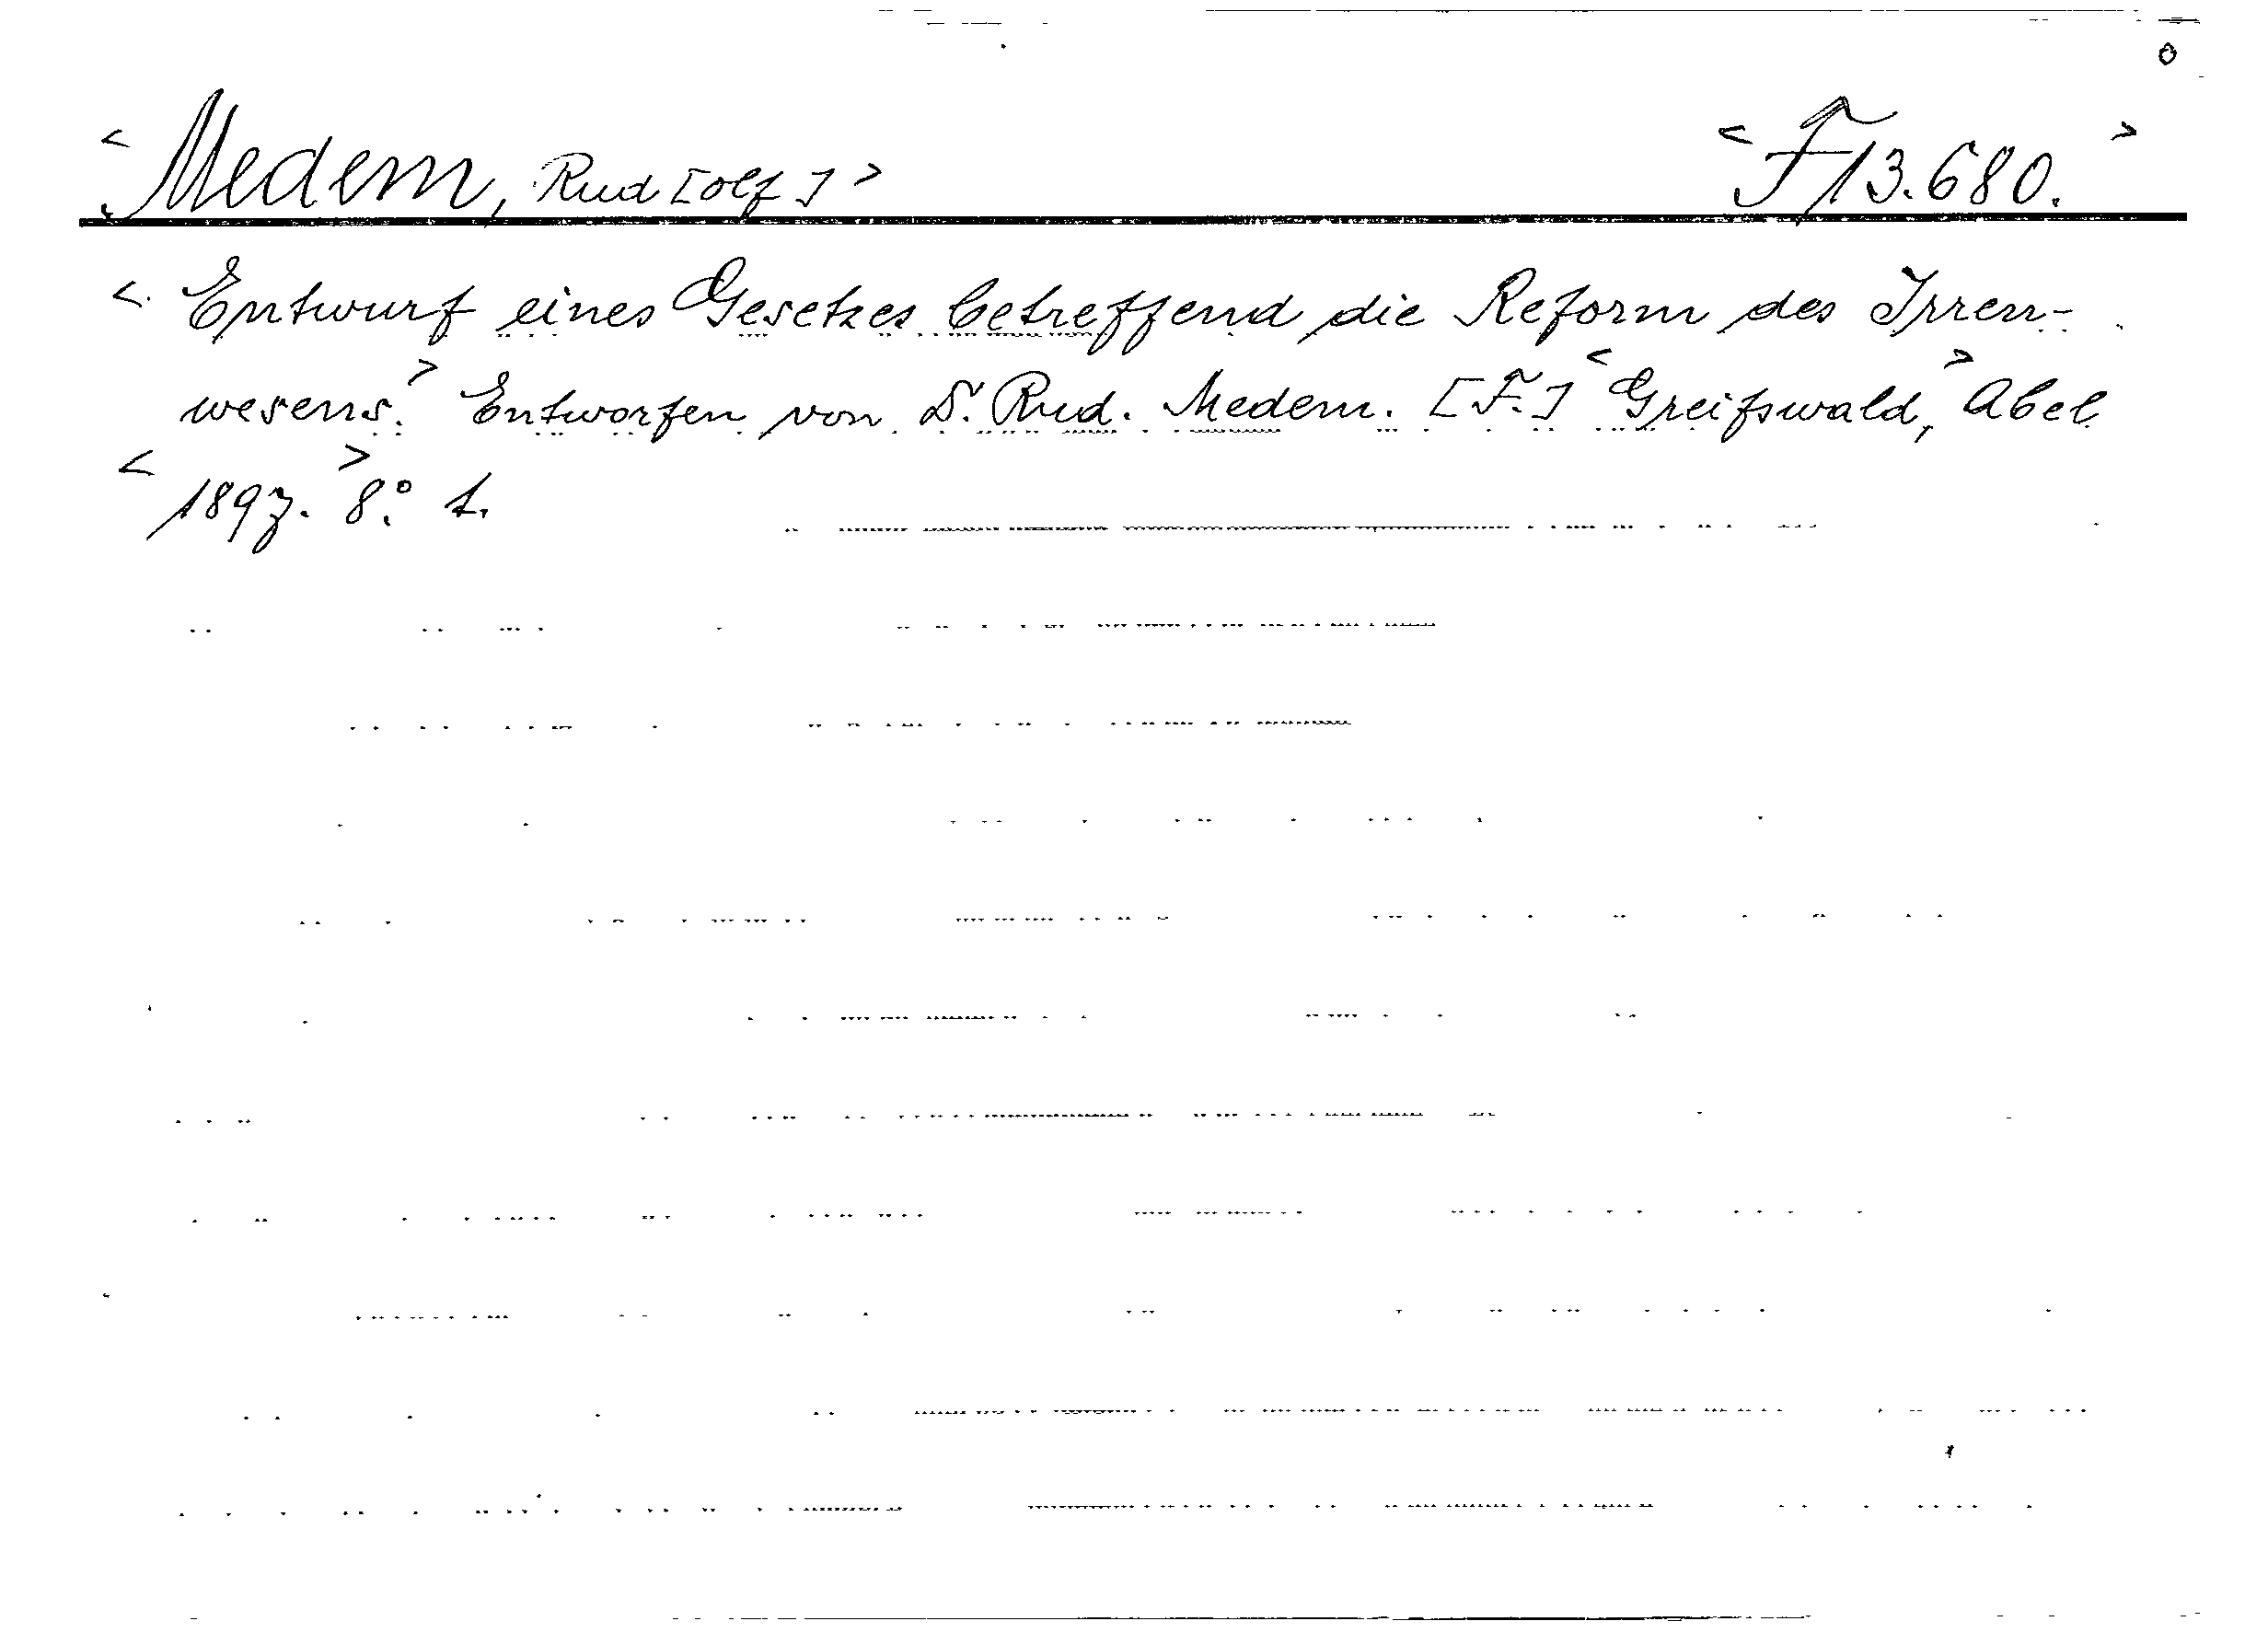 <Medem, Rud[olf]> <F 13.680.>
<Entwurf eines Gesetzes betreffend die Reform des Irren-
wesens.> Entworfen von D. Rud. Medem. [F.] <Greifswald,> Abel
<1897.> 8.°